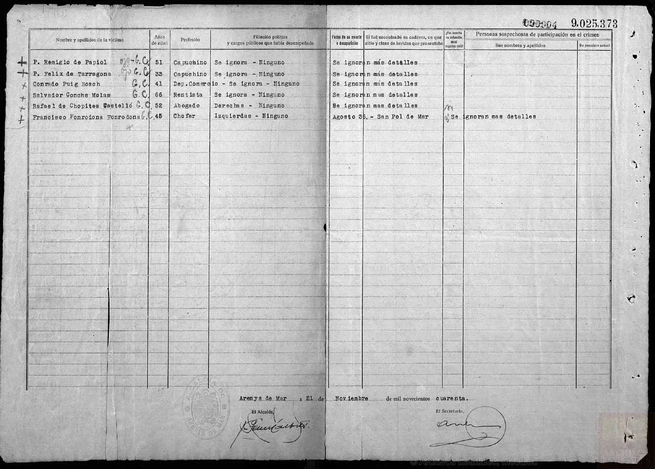 9.025.373
Nombre y apellidos de la víctima
Años de edad
Profesión
Filiación política y cargos políticos que había desempeñado
Personas sospechosas de participación en el crimen
Sus nombres y apellidos
P. Remigio de Papiol G. C. 51 Capuchino Se ignora - Ninguno Se ignoran más detalles
P. Felix de Tarragona G. C. 33 Capuchino Se ignora - Ninguno Se ignoran más detalles
Conrado Puig Bosch G. C. 41 Dep. Comercio - Se ignora - Ninguno Se ignoran mas detalles
Salvador G. C. 66 Rentista Se ignora - Ninguno Se ignoran mas detalles
Rafael de Chopitea G. C. 52 Abogado Derechas - Ninguno Se ignoran mas detalles
Francisco Fonrodona Fonrodona G. C. 45 Chofer Izquierdas - Ninguno Agosto 36.- San Pol de Mar Se ignoran mas detalles
Arenys de Mar a 21 de Noviembre de mil novecientos cuarenta.
El Alcalde, El Secretario,